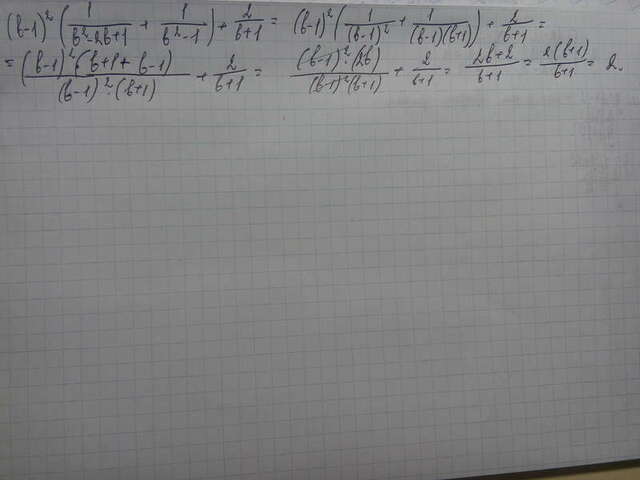 (b-1)² (1/(b²-2b+1) + 1/(b²-1)) + 2/(b+1) = (b-1)² (1/(b-1)² + 1/((b-1)(b+1))) + 2/(b+1) =
= ((b-1)²·(b+1+b-1))/((b-1)²·(b+1)) + 2/(b+1) = ((b-1)²·(2b))/((b-1)²(b+1)) + 2/(b+1) = (2b+2)/(b+1) = 2(b+1)/(b+1) = 2.